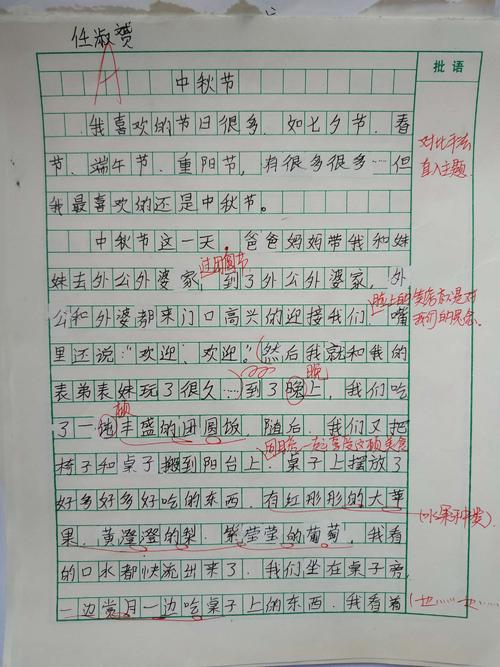 任淑赟
A
批语
中秋节
我喜欢的节日很多，如七夕节、春
对比手法
节、端午节、重阳节，有很多很多……但
直入主题
我最喜欢的还是中秋节。
中秋节这一天，爸爸妈妈带我和妹
过团圆节
妹去外公外婆家，到了外公外婆家，外
脸上的笑容就是对
公和外婆都来门口高兴的迎接我们，嘴
我们的思念
里还说：“欢迎，欢迎。”然后我就和我的
晚
表弟表妹玩了很久……到了晚上，我们吃
顿
了一地丰盛的团圆饭，随后，我们又把
椅子和桌子搬到阳台上，桌子上摆放了
好多好多好吃的东西，有红彤彤的大苹
（水果种类）
果，黄澄澄的梨，紫莹莹的葡萄，我看
的口水都快流出来了，我们坐在桌子旁，
一边赏月一边吃桌子上的东西，我看着